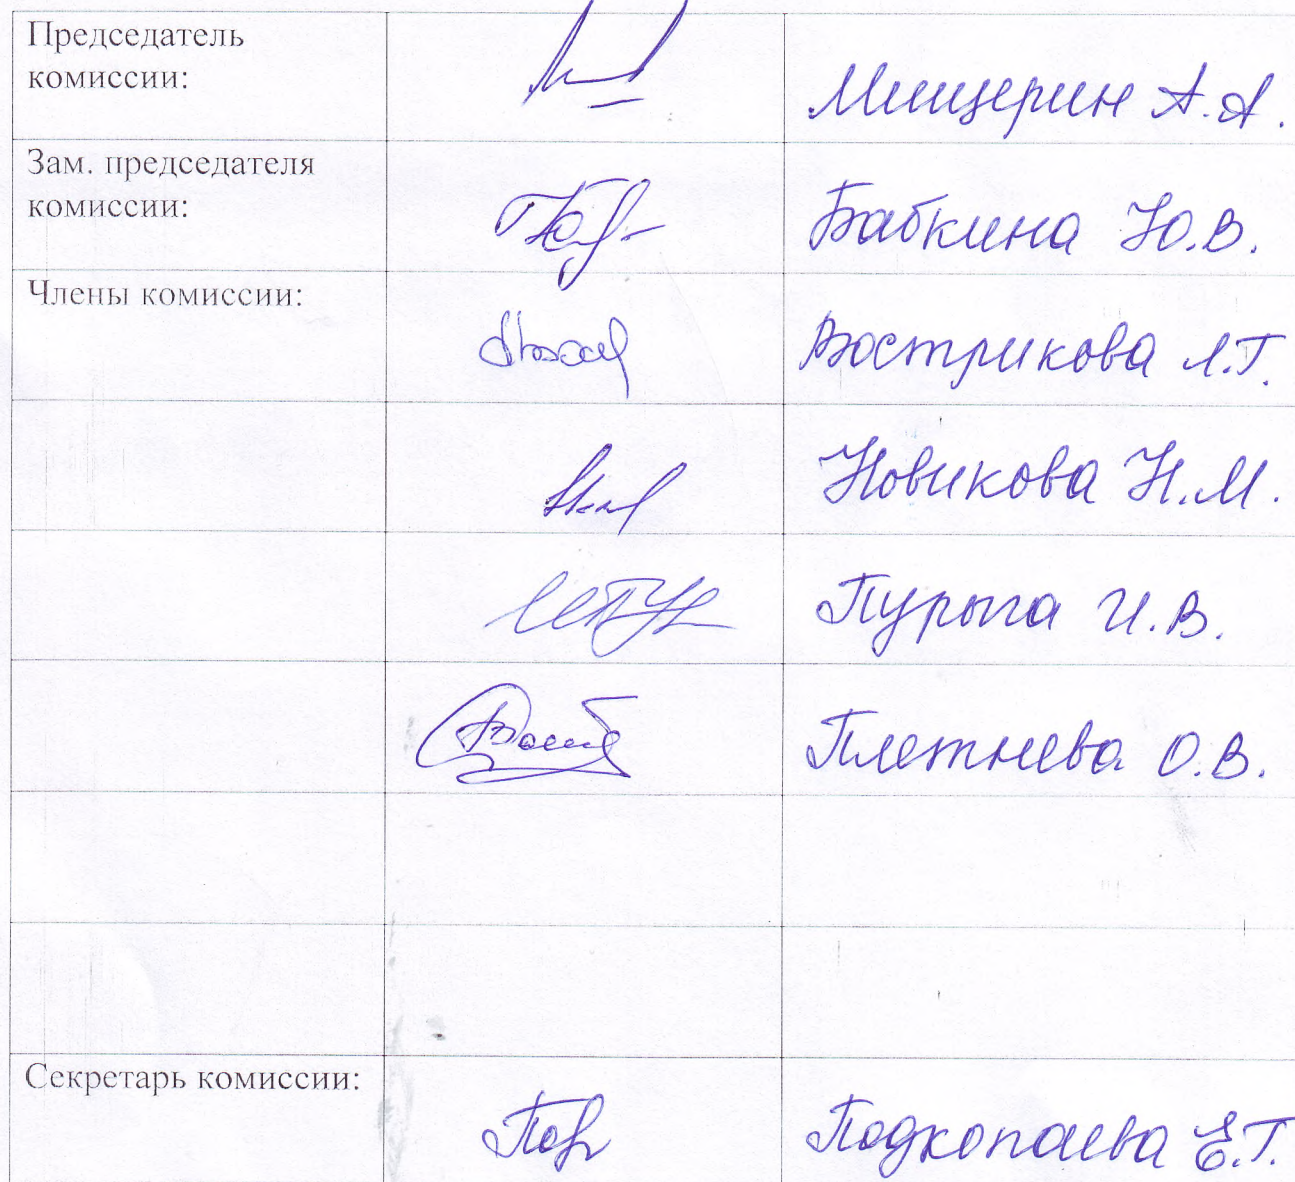 Председатель
комиссии:
Мищерин А.А.
Зам. председателя
комиссии:
Бабкина Ю.В.
Члены комиссии:
Вострикова Л.Г.
Новикова Н.М.
Пурыга И.В.
Плетнева О.В.
Секретарь комиссии:
Подкопаева Е.Г.